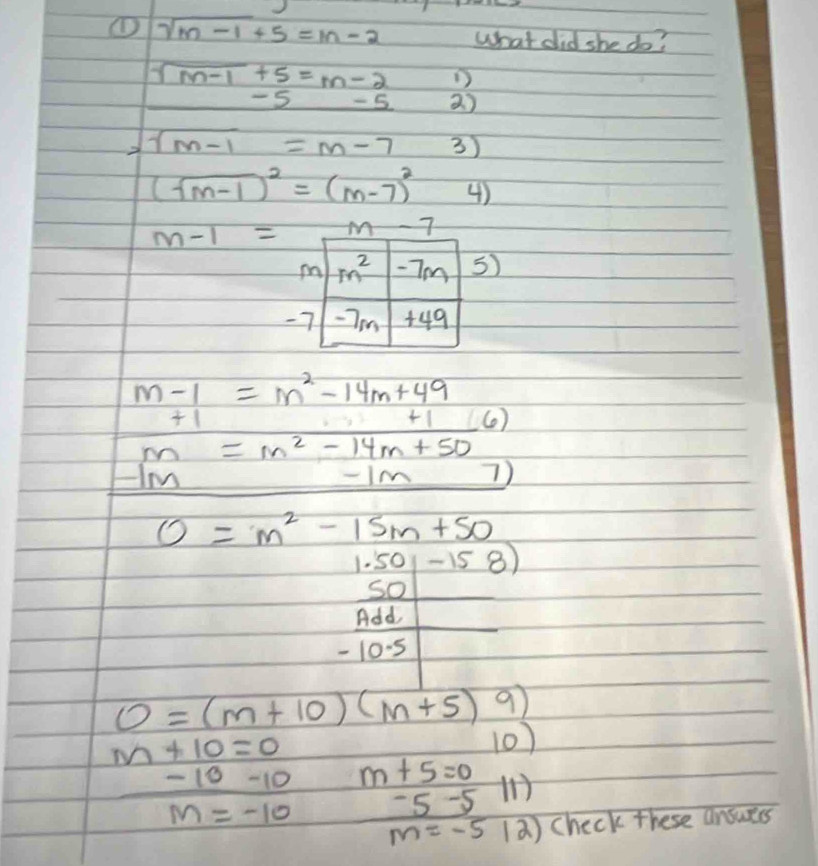 ① √m-1 + 5 = m - 2 What did she do?
√m-1 + 5 = m - 2 1)
-5 -5 2)
√m-1 = m - 7 3)
(√m-1)² = (m-7)² 4)
m - 1 = m - 7
m m² -7m 5)
-7 -7m +49
m - 1 = m² - 14m + 49
+1 +1 (6)
m = m² - 14m + 50
-1m -1m 7)
0 = m² - 15m + 50
1·50 -15 8)
50
Add
-10·5
0 = (m + 10)(m + 5) 9)
m + 10 = 0 10)
-10 -10 m + 5 = 0
-5 -5 11)
m = -10
m = -5 12) Check these answers